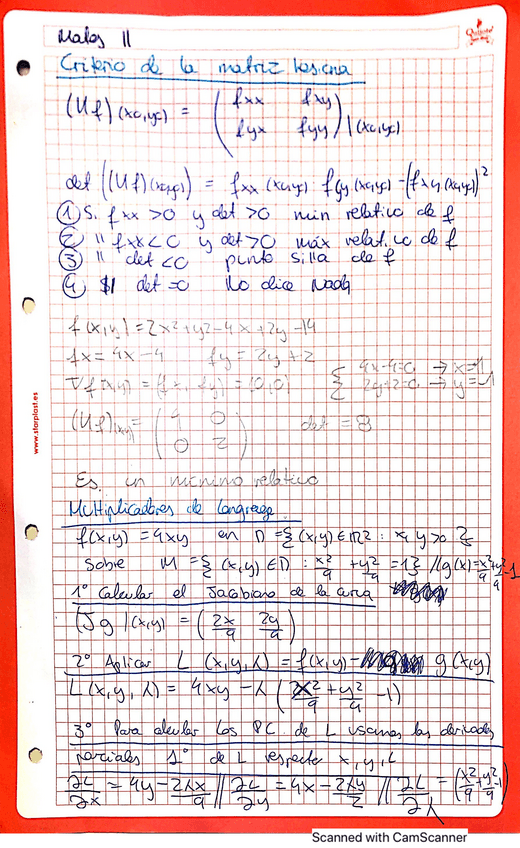 Mates II
Criterio de la matriz hesiana
(Hf)(x0,y0) = ( fxx fxy
fyx fyy ) |(x0,y0)
det ((Hf)(x0,y0)) = fxx (x0,y0) · fyy (x0,y0) - (fxy (x0,y0))²
① Si fxx >0 y det >0 min relativo de f
② " fxx<0 y det >0 máx relativo de f
③ " det <0 punto silla de f
④ Si det =0 No dice nada
f(x,y) = 2x²+y²-4x+2y-14
fx = 4x-4 fy = 2y+2
4x-4=0 → x=1
∇f(x,y) = (fx, fy) = (0,0) { 2y+2=0 → y=-1
(Hf)(x,y) = ( 4 0
0 2 ) det = 8
Es un mínimo relativo
Multiplicadores de Langrage
f(x,y) = 4xy en D = {(x,y) ∈ R2 : x, y >0 }
Sobre M = { (x,y) ∈ D : x²/9 + y²/4 = 1} // g(x) = x²/9 + y²/4 -1
1° Calcular el Jacobiano de la curva
(Jg)(x,y) = ( 2x/9 2y/4 )
2° Aplicar L (x,y,λ) = f(x,y) - g(x,y)
L(x,y,λ) = 4xy - λ ( x²/9 + y²/4 -1)
3° Para calcular los PC de L usamos las derivadas
parciales 1° de L respecto x, y, L
∂L/∂x = 4y - 2λx/9 // ∂L/∂y = 4x - 2λy/2 // ∂L/∂λ = (x²/9 + y²/4 -1)
www.starplast.es
Scanned with CamScanner